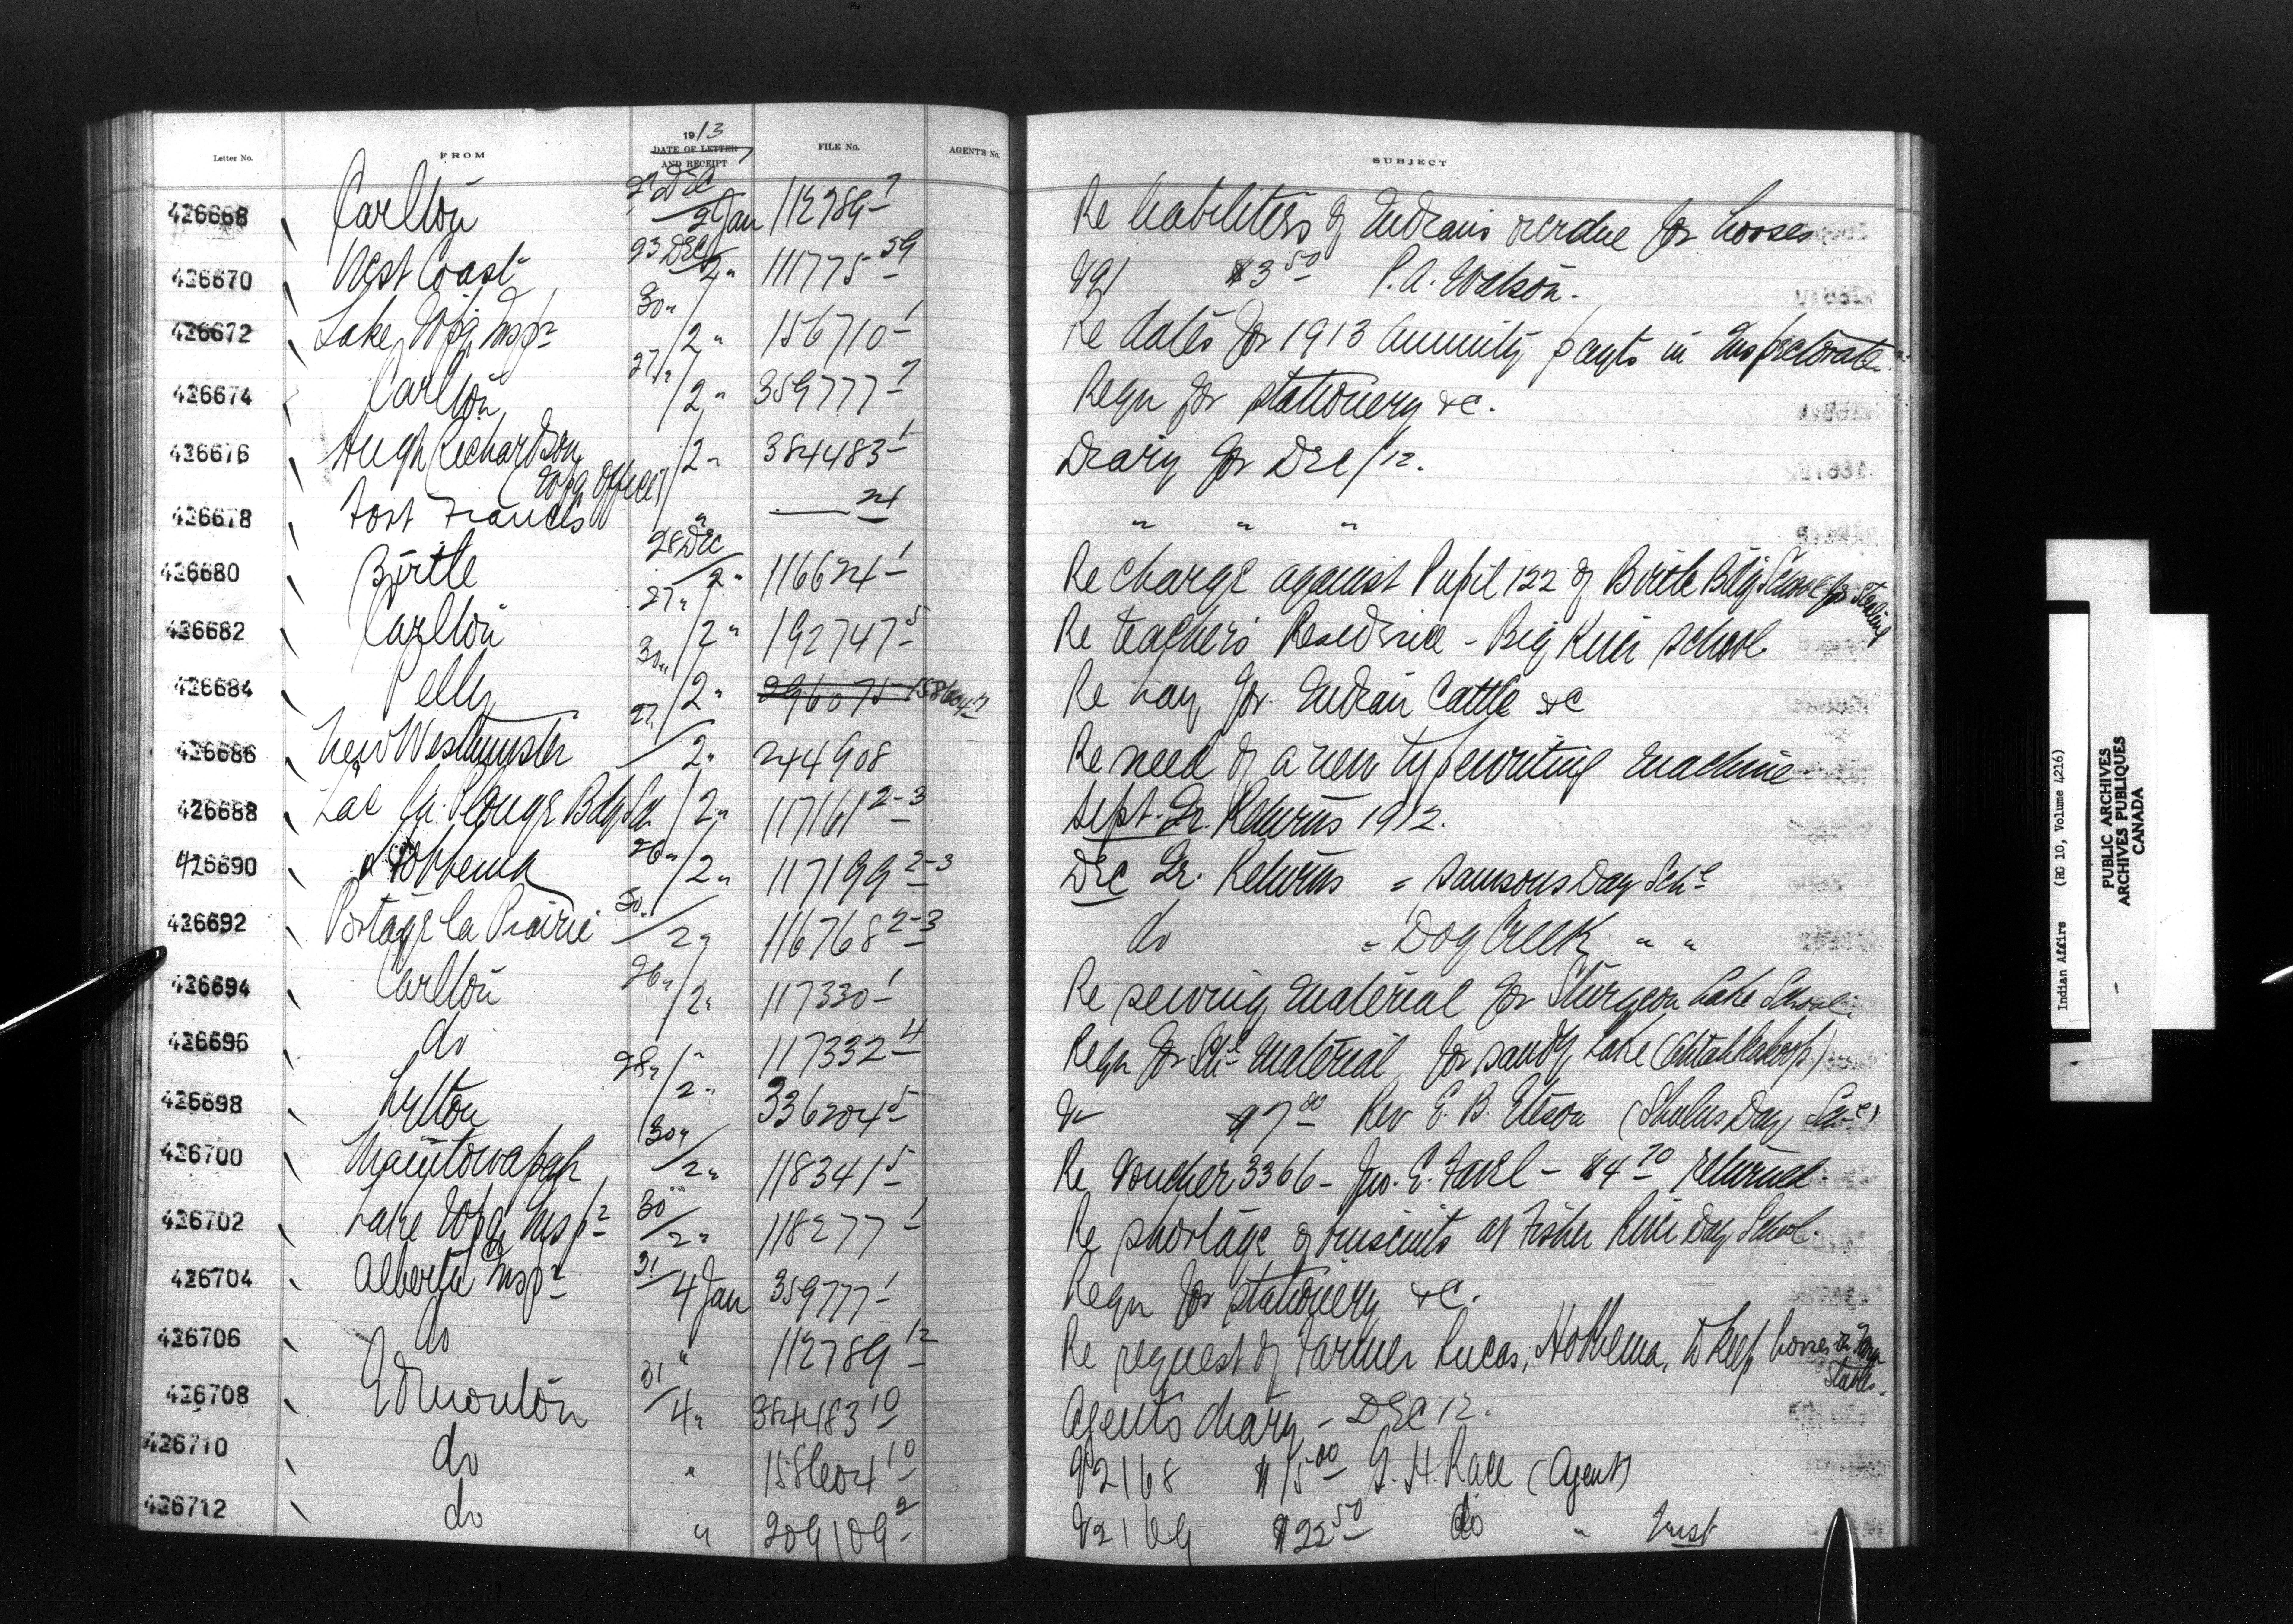 1913
Letter No. FROM DATE OF LETTER AND RECEIPT FILE No. AGENT'S No. SUBJECT
426668 Carlton 27 Dec / 2 Jan 112789 7 Re liabilities of Indians overdue for horses
426670 West Coast 23 Dec / 2 " 111775 59 V91 $3 50 P. A. Watson.
426672 Lake Wpg Insp 30 " / 2 " 156710 1 Re dates for 1913 Annuity payts in Inspectorate
426674 Carlton 27 " / 2 " 359777 7 Reqn for stationery &c.
426676 Hugh Richardson (Wpg Office) / 2 " 384483 1 Diary for Dec/12.
426678 Fort Frances " —— 21 " " "
426680 Birtle 28 Dec / 2 " 116624 1 Re charge against Pupil 122 of Birtle Bdg School for Stealing
426682 Carlton 27 " / 2 " 192747 5 Re teacher's Residence - Big River School
426684 Pelly 30 " / 2 " 296075 158604 7 Re hay for Indian Cattle &c
426686 New Westminster 27 " / 2 " 244908 Re need of a new typewriting machine
426688 Lac la Plonge Bdg Sch / 2 " 117161 2-3 Sept. Qr. Returns 1912.
426690 Hobbema 26 " / 2 " 117199 2-3 Dec Qr. Returns = Samsons Day Schl
426692 Portage la Prairie 30 " / 2 " 116768 2-3 do = Dog Creek " "
426694 Carlton 26 " / 2 " 117330 1 Re sewing material for Sturgeon Lake School.
426696 do / " 117332 4 Reqn for Schl material for Sandy Lake
426698 Lytton 28 " / 2 " 336204 5 V $7 00 Rev E. B. (Shulus Day Schl)
426700 Manitowapah 30 " / 2 " 118341 5 Re Voucher 3366 - Jno. E. Favel - $4 70 returned.
426702 Lake Wpg Insp 30 / 2 " 118277 1 Re shortage of biscuits at Fisher River Day School.
426704 Alberta Insp 31 / 4 Jan 359777 1 Reqn for stationery &c.
426706 do " 112789 12 Re request of Farmer Lucas, Hobbema, to keep horses in Farm Stables.
426708 Edmonton 31 / 4 " 384483 10 Agents diary - Dec 12.
426710 do " 158604 10 V2168 $15 00 G. H. Race (Agent)
426712 do " 209109 2 V2169 $22 50 do " Trust
Indian Affairs (RG 10, Volume 4216)
PUBLIC ARCHIVES
ARCHIVES PUBLIQUES
CANADA